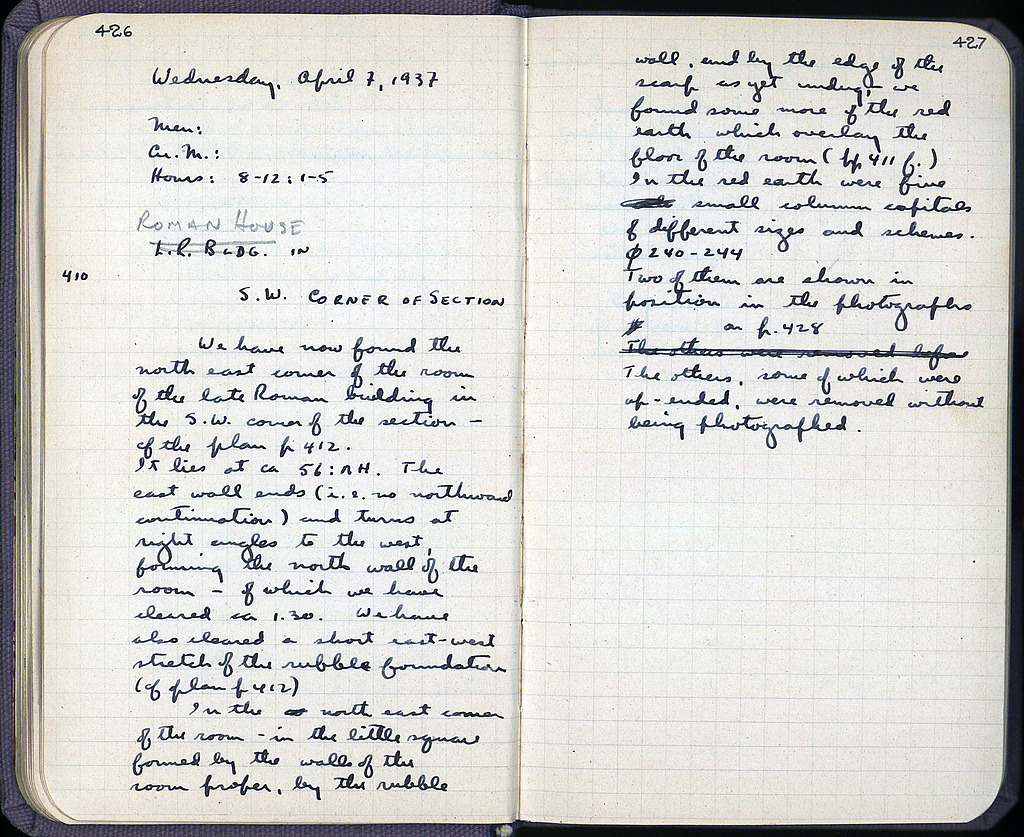 426
Wednesday, April 7, 1937
Men:
Cr. M.:
Hours: 8-12; 1-5
ROMAN HOUSE
L.R. BLDG. IN
410
S.W. CORNER OF SECTION
We have now found the
north east corner of the room
of the late Roman building in
the S.W. corner of the section -
cf the plan p 412.
It lies at ca 56:ΛH. The
east wall ends (i.e. no northward
continuation) and turns at
right angles to the west,
forming the north wall of the
room - of which we have
cleared ca 1.30. We have
also cleared a short east-west
stretch of the rubble foundation
(cf plan p 412)
In the north east corner
of the room - in the little square
formed by the walls of the
room proper, by the rubble
427
wall, and by the edge of the
scarp as yet undug - we
found some more of the red
earth which overlay the
floor of the room (pp 411 f.)
In the red earth were five
small column capitals
of different sizes and schemes.
φ 240-244
Two of them are shown in
position in the photographs
on p. 428
The others were removed before
The others, some of which were
up-ended, were removed without
being photographed.